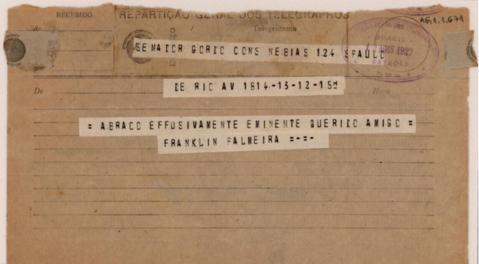 RECEBIDO
REPARTIÇÃO GERAL DOS TELEGRAPHOS
de
Telegramma
AG.1.1.671
SENADOR GORDO CONS NEBIAS 124 SPAULO
De
DE RIO AV 1814-13-12-15H
Hora
= ABRACO EFFUSIVAMENTE EMINENTE QUERIDO AMIGO =
FRANKLIN PALMEIRA =-=-